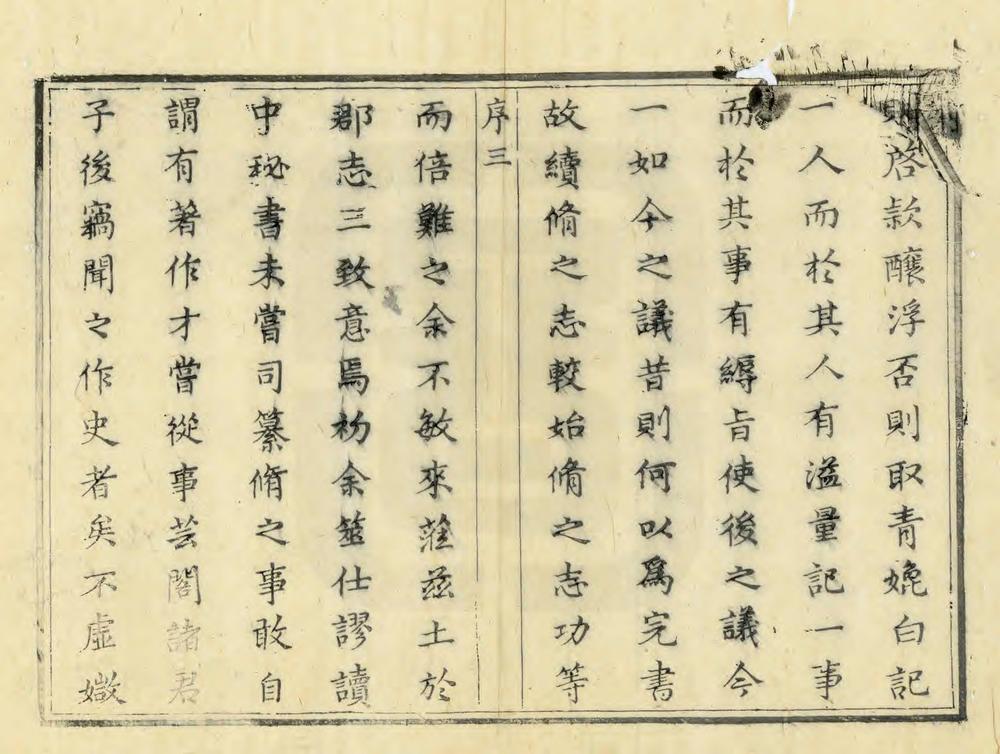 則啓款釀浮否則取青媲白記
一人而於其人有溢量記一事
而於其事有縟旨使後之議今
一如今之議昔則何以爲完書
故續脩之志較始脩之志功等
序三
而倍難之余不敏來蒞茲土於
郡志三致意焉初余筮仕謬讀
中秘書未嘗司纂脩之事敢自
謂有著作才嘗從事芸閣諸君
子後竊聞之作史者矣不虛媺